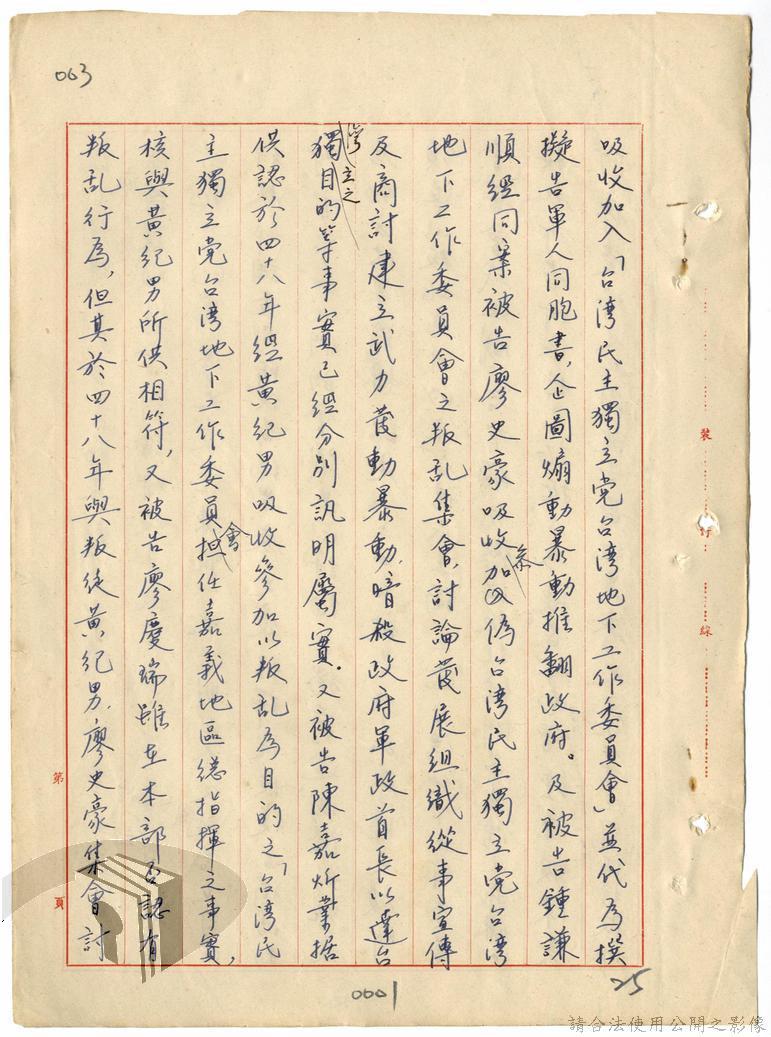 063
吸收加入「台湾民主獨立党台湾地下工作委員會」並代為撰
擬告軍人同胞書，企圖煽動暴動推翻政府。及被告鍾謙
順經同案被告廖史豪吸收參加偽台湾民主獨立党台湾
地下工作委員會之叛乱集會，討論發展組織從事宣傳
及商討建立武力發動暴動，暗殺政府軍政首長以達台
湾獨立之目的等事實已經分別訊明屬實。又被告陳嘉炘業據
供認於四十八年經黄紀男吸收參加以叛乱為目的之「台湾民
主獨立党台湾地下工作委員會担任嘉義地區總指揮之事實，
核與黄紀男所供相符，又被告廖慶瑞雖在本部否認有
叛乱行為，但其於四十八年與叛徒黄紀男，廖史豪集會討
裝
訂
線
第
頁
0001
25
請合法使用公開之影像